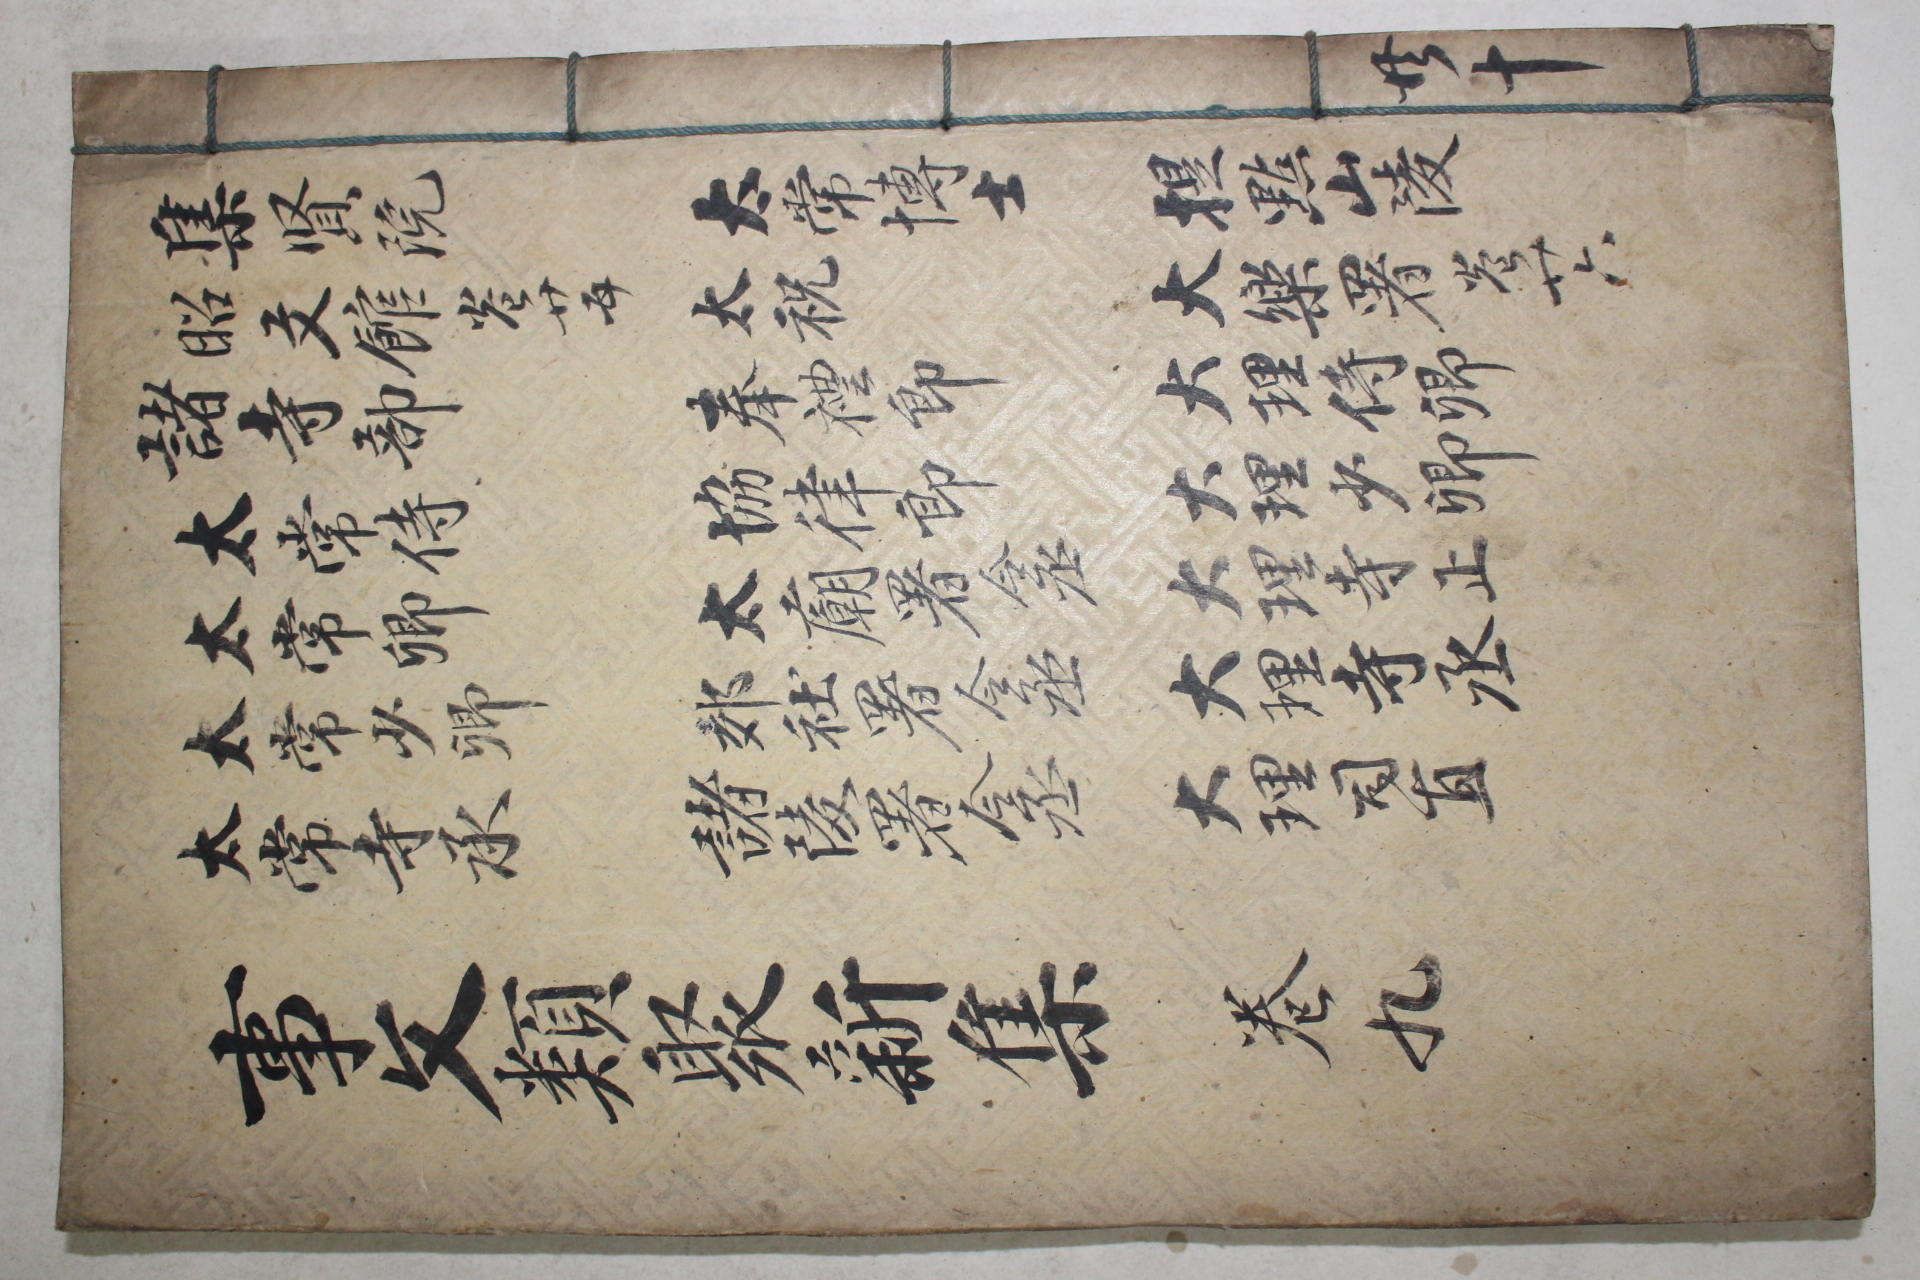 共十
集賢院
昭文館 卷廿五
諸寺部
太常侍
太常卿
太常少卿
太常寺丞
太常博士
太祝
奉禮郎
協律郎
太廟署令丞
郊社署令丞
諸陵署令丞
提點山陵
大樂署 卷廿六
大理侍卿
大理少卿
大理寺正
大理寺丞
大理司直
事文類聚新集 卷九